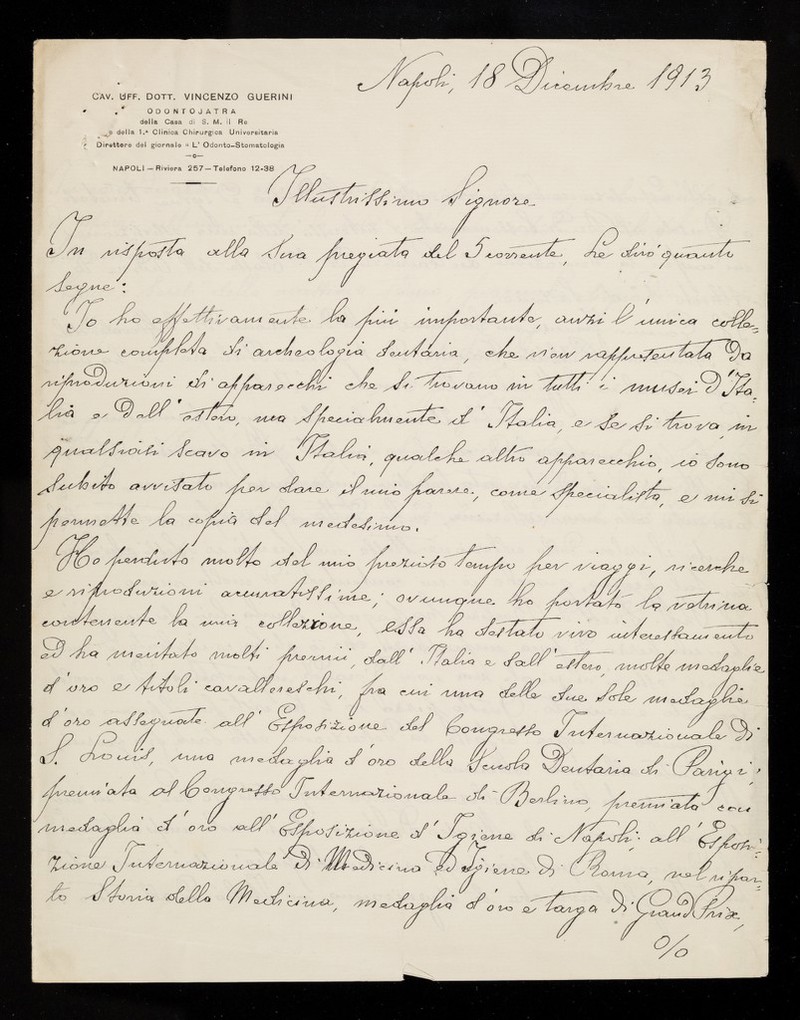 CAV. UFF. DOTT. VINCENZO GUERINI
ODONTOJATRA
della Casa di S. M. il Re
e della 1.ª Clinica Chirurgica Universitaria
Direttore del giornale « L' Odonto-Stomatologia
NAPOLI — Riviera 257 — Telefono 12-38
Napoli, 18 Dicembre 1913
Illustrissimo Signore
In risposta alla Sua pregiata del 5 corrente, Le dirò quanto
segue:
Io ho effettivamente la più importante, anzi l'unica colle=
zione completa di archeologia dentaria, che vien rappresentata da
riproduzioni di apparecchi che si trovano in tutti i musei d'Ita=
lia e dall'estero, ma specialmente d'Italia, e se si trova in
qualsiasi scavo in Italia, qualche altro apparecchio, io sono
subito avvisato per dare il mio parere, come specialista, e mi si
permette la copia del medesimo.
Ho perduto molto del mio prezioso tempo per viaggi, ricerche
e riproduzioni accuratissime; ovunque ho portato la vetrina
contenente la mia collezione, essa ha destato vivo interessamento
ed ha meritato molti premii, dall'Italia e dall'estero, molte medaglie
d'oro e titoli cavallereschi, fra cui una delle due sole medaglie
d'oro assegnate all'Esposizione del Congresso Internazionale di
S. Louis, una medaglia d'oro della Scuola Dentaria di Parigi;
premiata al Congresso Internazionale di Berlino, premiata con
medaglia d'oro all'Esposizione d'Igiene di Napoli; all'Esposi=
zione Internazionale di Medicina ed Igiene di Roma, nel ripar=
to Storia della Medicina, medaglia d'oro e targa di Grand Prix,
%